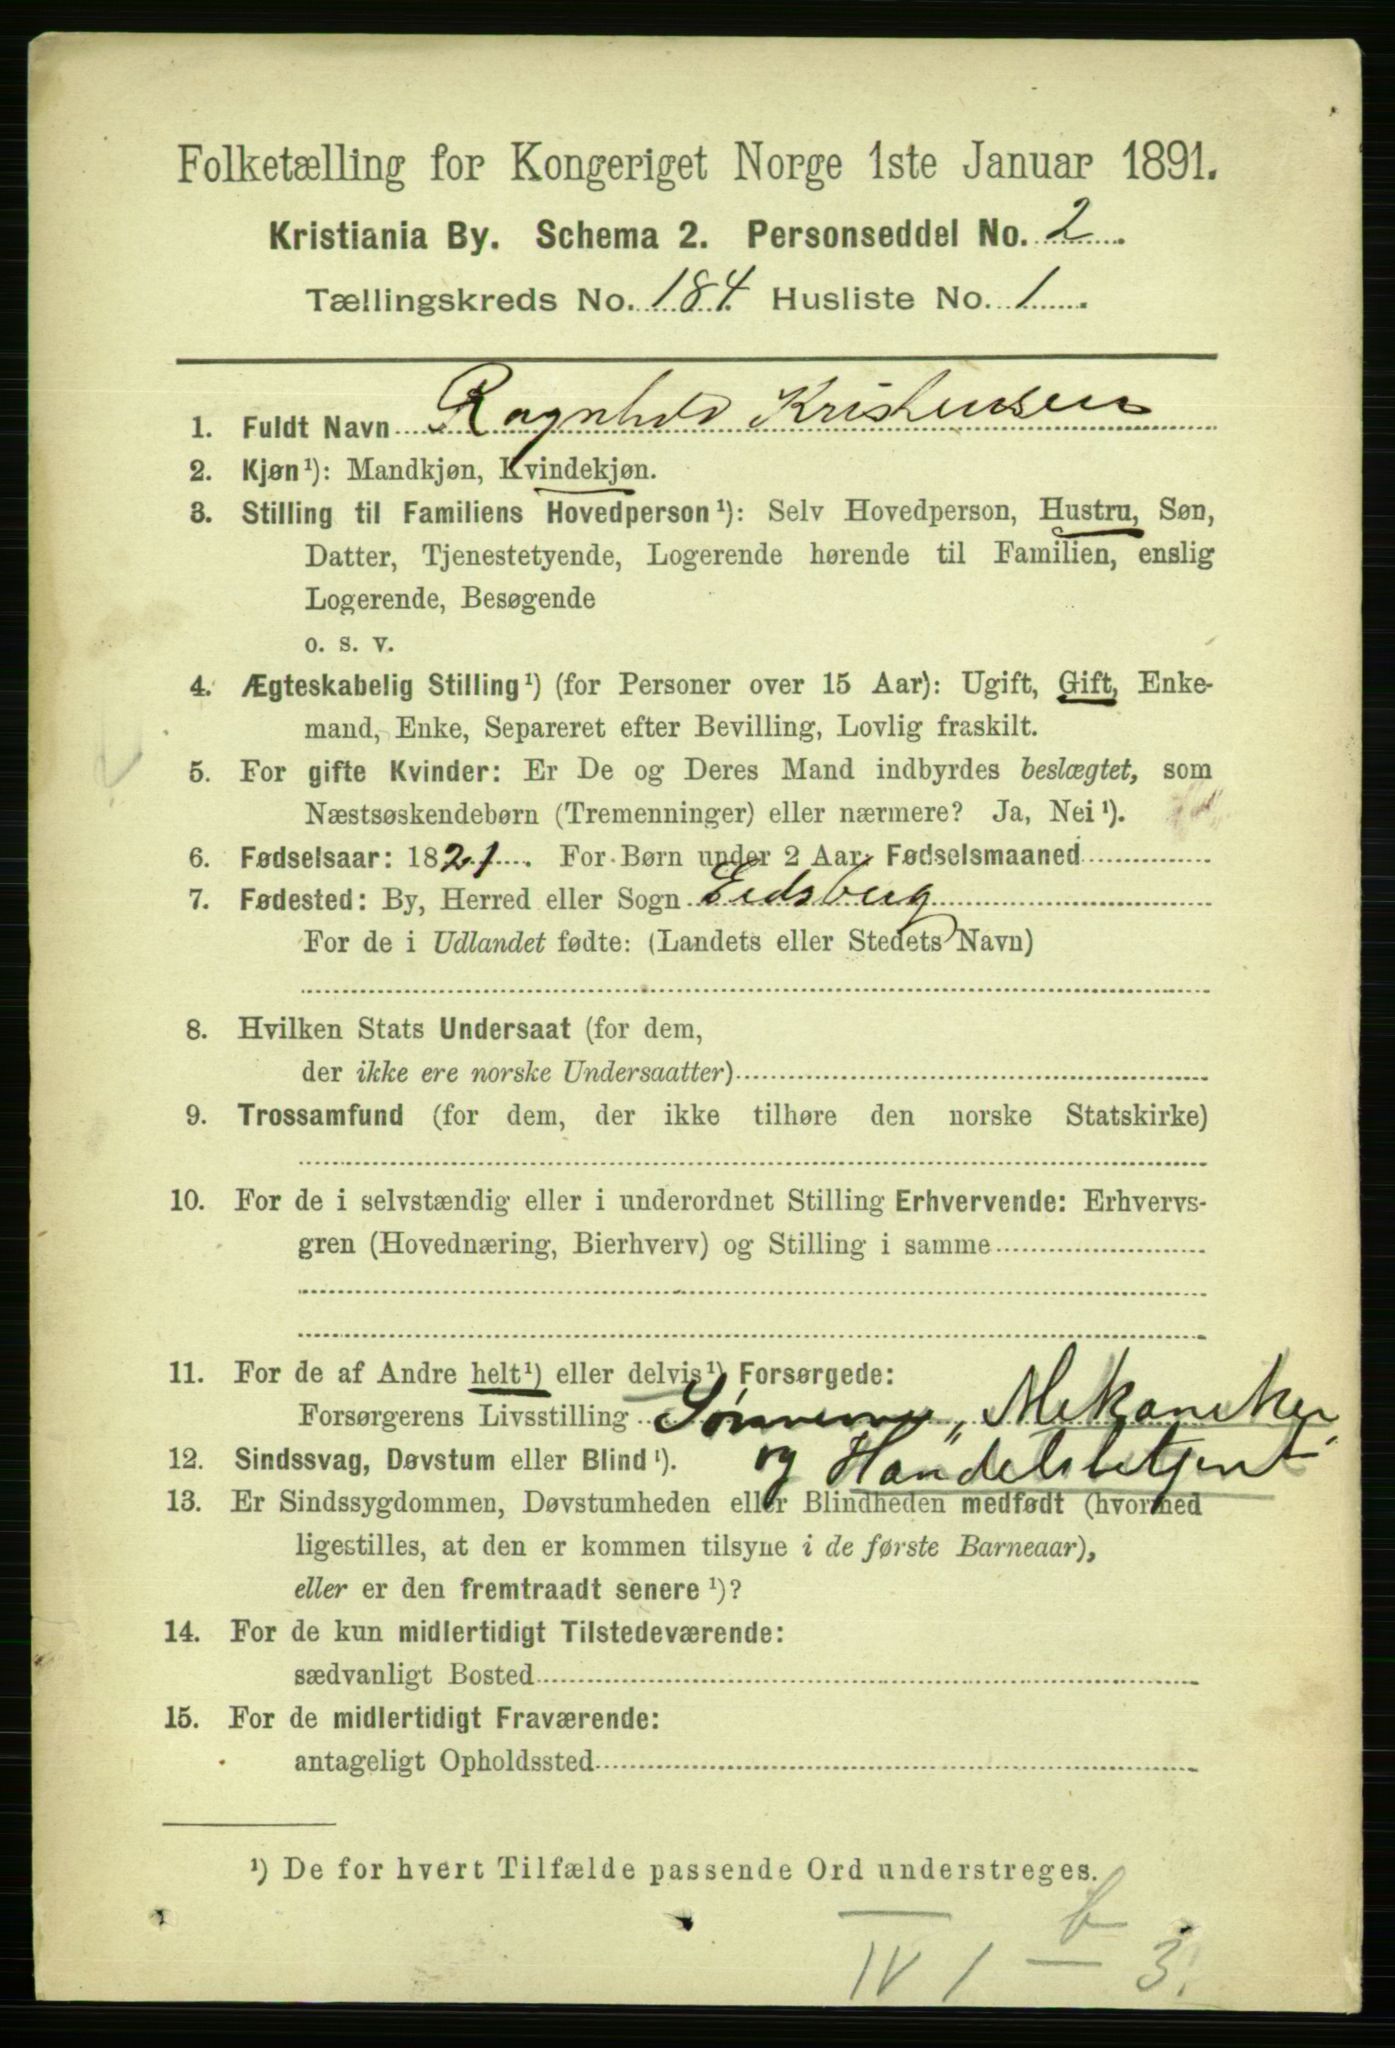 Folketælling for Kongeriget Norge 1ste Januar 1891.
Kristiania By. Schema 2. Personseddel No. 2
Tællingskreds No. 184 Husliste No. 1
1. Fuldt Navn Ragnhild Kristensen
2. Kjøn¹): Mandkjøn, Kvindekjøn.
3. Stilling til Familiens Hovedperson¹): Selv Hovedperson, Hustru, Søn,
Datter, Tjenestetyende, Logerende hørende til Familien, enslig
Logerende, Besøgende
o. s. v.
4. Ægteskabelig Stilling¹) (for Personer over 15 Aar): Ugift, Gift, Enke-
mand, Enke, Separeret efter Bevilling, Lovlig fraskilt.
5. For gifte Kvinder: Er De og Deres Mand indbyrdes beslægtet, som
Næstsøskendebørn (Tremenninger) eller nærmere? Ja, Nei¹).
6. Fødselsaar: 1821. For Børn under 2 Aar: Fødselsmaaned
7. Fødested: By, Herred eller Sogn Eidsberg
For de i Udlandet fødte: (Landets eller Stedets Navn)
8. Hvilken Stats Undersaat (for dem,
der ikke ere norske Undersaatter)
9. Trossamfund (for dem, der ikke tilhøre den norske Statskirke)
10. For de i selvstændig eller i underordnet Stilling Erhvervende: Erhvervs-
gren (Hovednæring, Bierhverv) og Stilling i samme
11. For de af Andre helt¹) eller delvis¹) Forsørgede:
Forsørgerens Livsstilling Sønnerne „Mekaniker
og Handelsbetjent“
12. Sindssvag, Døvstum eller Blind¹).
13. Er Sindssygdommen, Døvstumheden eller Blindheden medfødt (hvormed
ligestilles, at den er kommen tilsyne i de første Barneaar),
eller er den fremtraadt senere¹)?
14. For de kun midlertidigt Tilstedeværende:
sædvanligt Bosted
15. For de midlertidigt Fraværende:
antageligt Opholdssted
¹) De for hvert Tilfælde passende Ord understreges.
b
IV 1 — 3.